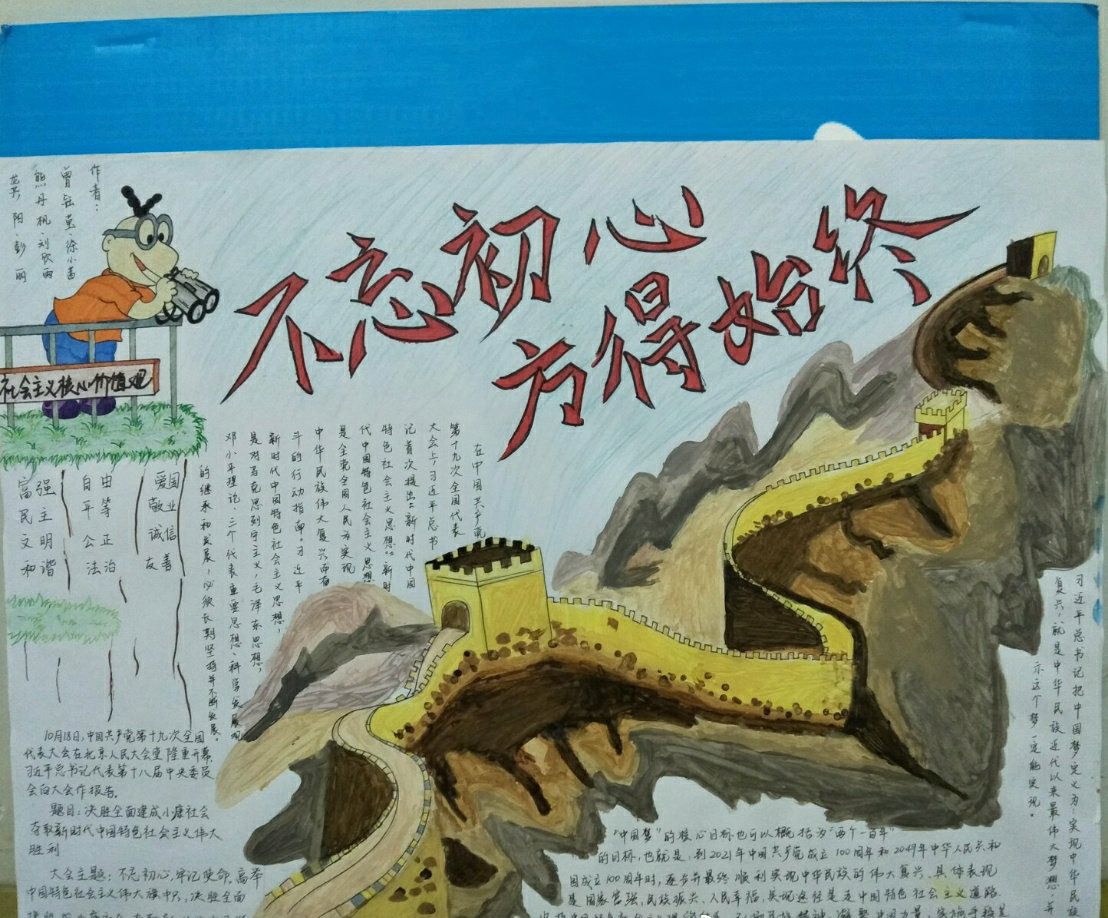 不忘初心
方得始终
作者：
社会主义核心价值观
富强
民主
文明
和谐
自由
平等
公正
法治
爱国
敬业
诚信
友善
在中国共产党
第十九次全国代表
大会上习近平总书
记首次提出"新时代中国
特色社会主义思想"。新时
代中国特色社会主义思想
是全党全国人民为实现
中华民族伟大复兴而奋
斗的行动指南。习近平
新时代中国特色社会主义思想，
是对马克思列宁主义，毛泽东思想，
邓小平理论、三个代表重要思想、科学发展观
的继承和发展，必须长期坚持并不断发展。
10月18日，中国共产党第十九次全国
代表大会在北京人民大会堂隆重开幕
习近平总书记代表第十八届中央委员
会向大会作报告。
题目：决胜全面建成小康社会
夺取新时代中国特色社会主义伟大
胜利
大会主题：不忘初心，牢记使命，高举
中国特色社会主义伟大旗中，决胜全面
习近平总书记把"中国梦"定义为"实现中华民族
复兴，就是中华民族近代以来最伟大梦想
示这个梦"一定能实现。
"中国梦"的核心目标也可以概括为"两个一百年"
的目标，也就是，到2021年中国共产党成立100周年和2049年中华人民共和
国成立100周年时，逐步并最终顺利实现中华民族的伟大复兴，具体表现
是国家富强，民族振兴，人民幸福，实现途径是走中国特色社会主义道路